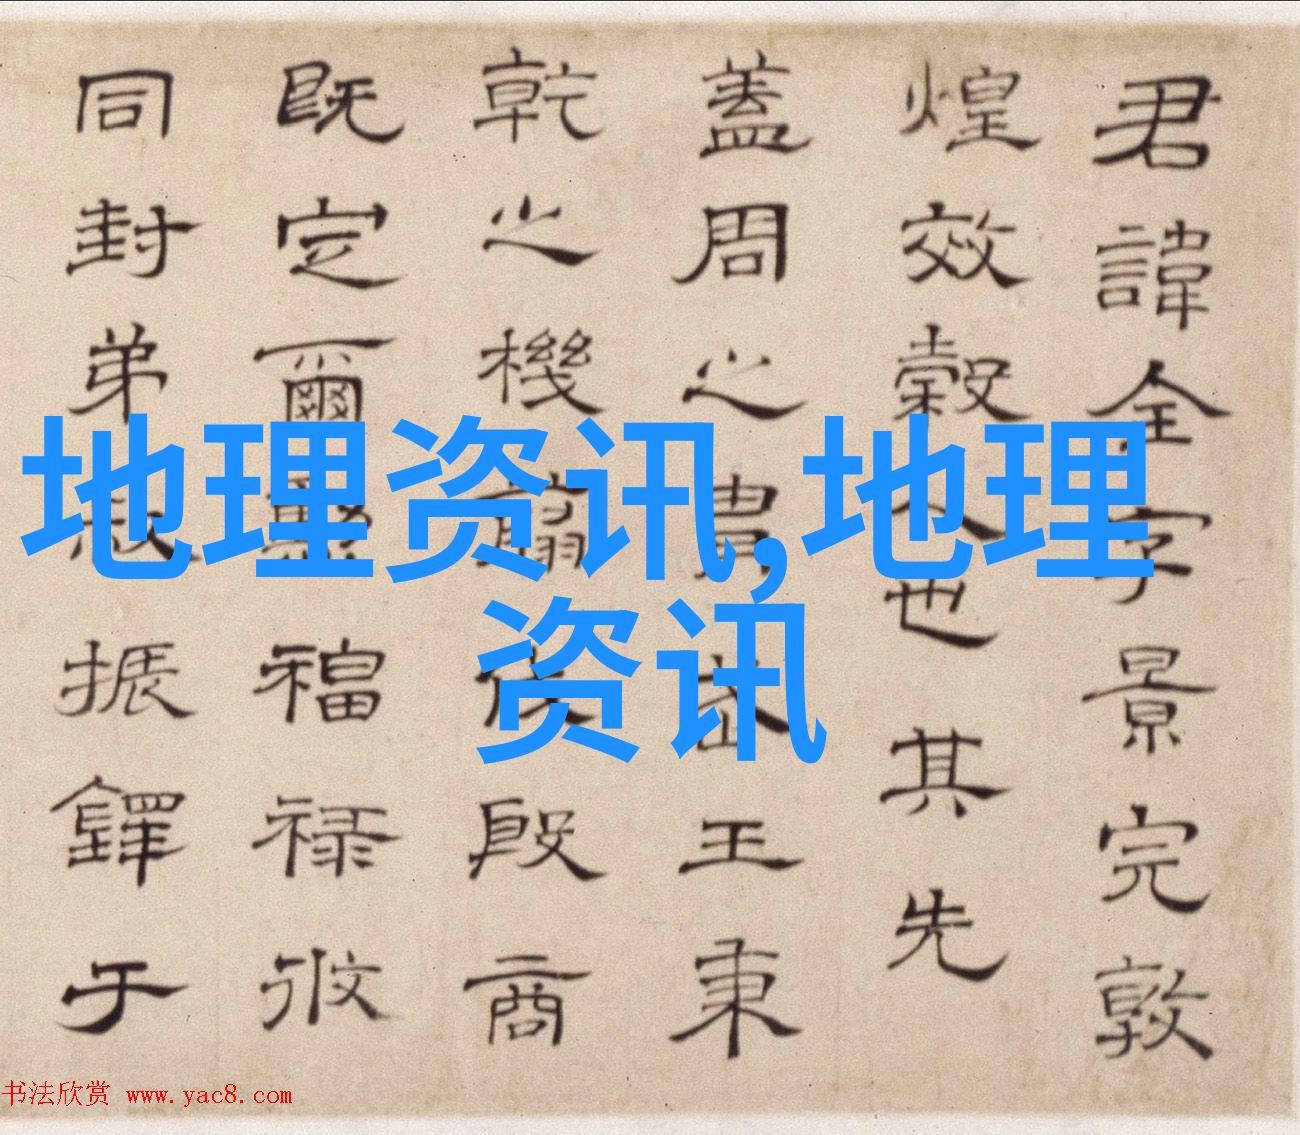 君諱全字景完敦
煌效穀人也其先
蓋周之胄武王秉
乾之機翦伐殷商
既定爾勳福祿攸
同封弟叔振鐸于
地理资讯,地理
资讯
书法欣赏 www.yac8.com